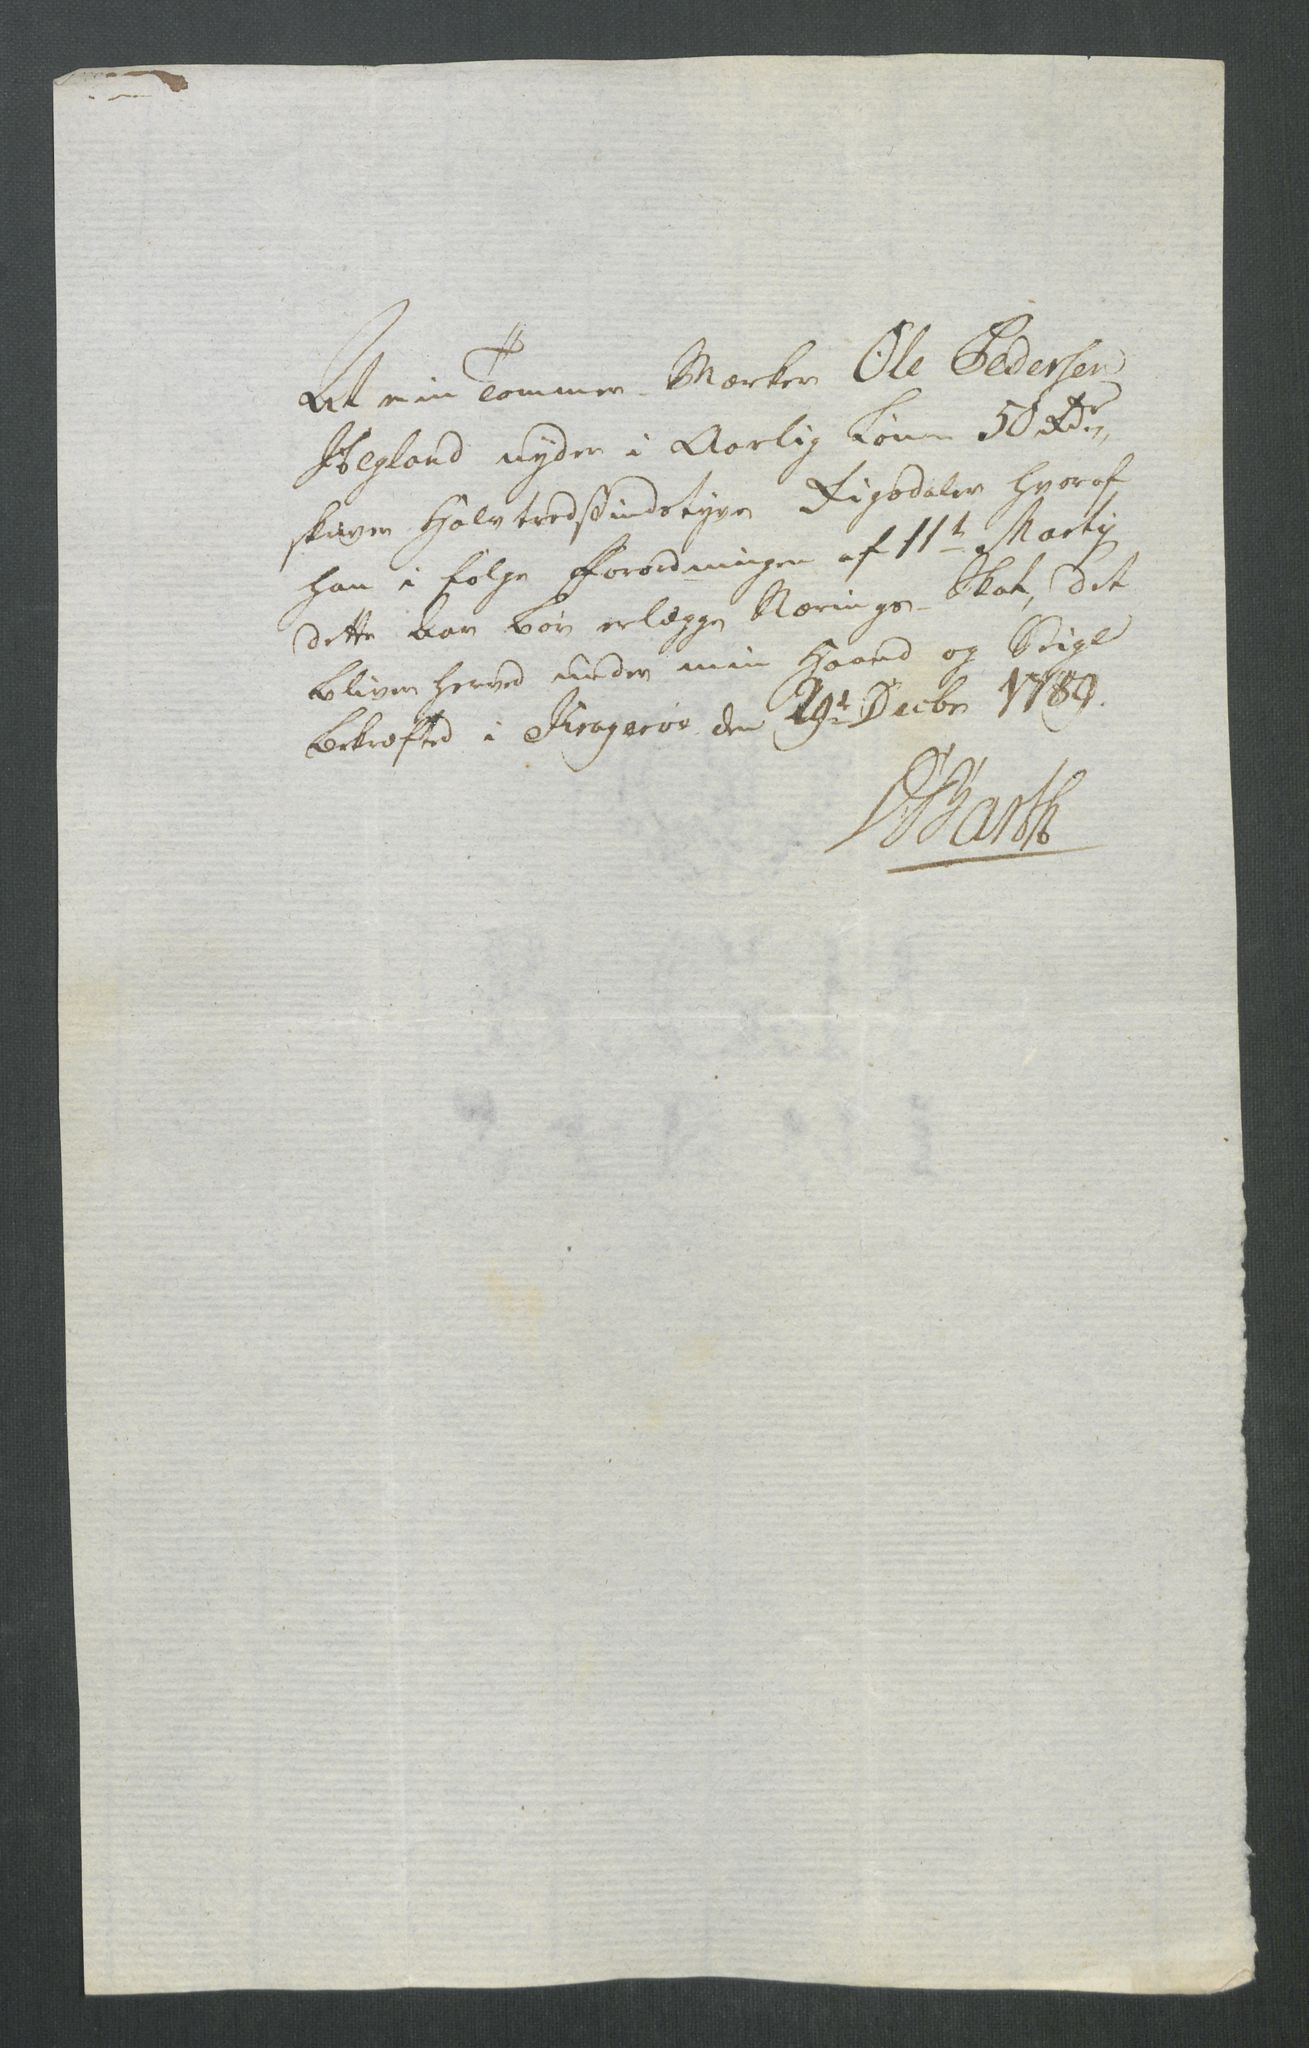 At min Tømmer-Mærker Ole Pedersen
Hegland nyder i Aarlig Lønn 50 Rdr,
skriver Halvtredssindstyve Rigsdaler hvoraf
han i følge Forordningen af 11t Martij
dette Aar bør erlægge Nærings-Skat, det
bliver herved under min Haand og Seigl
bekræfted i Kragerøe den 29t Decbr 1789.
Barth